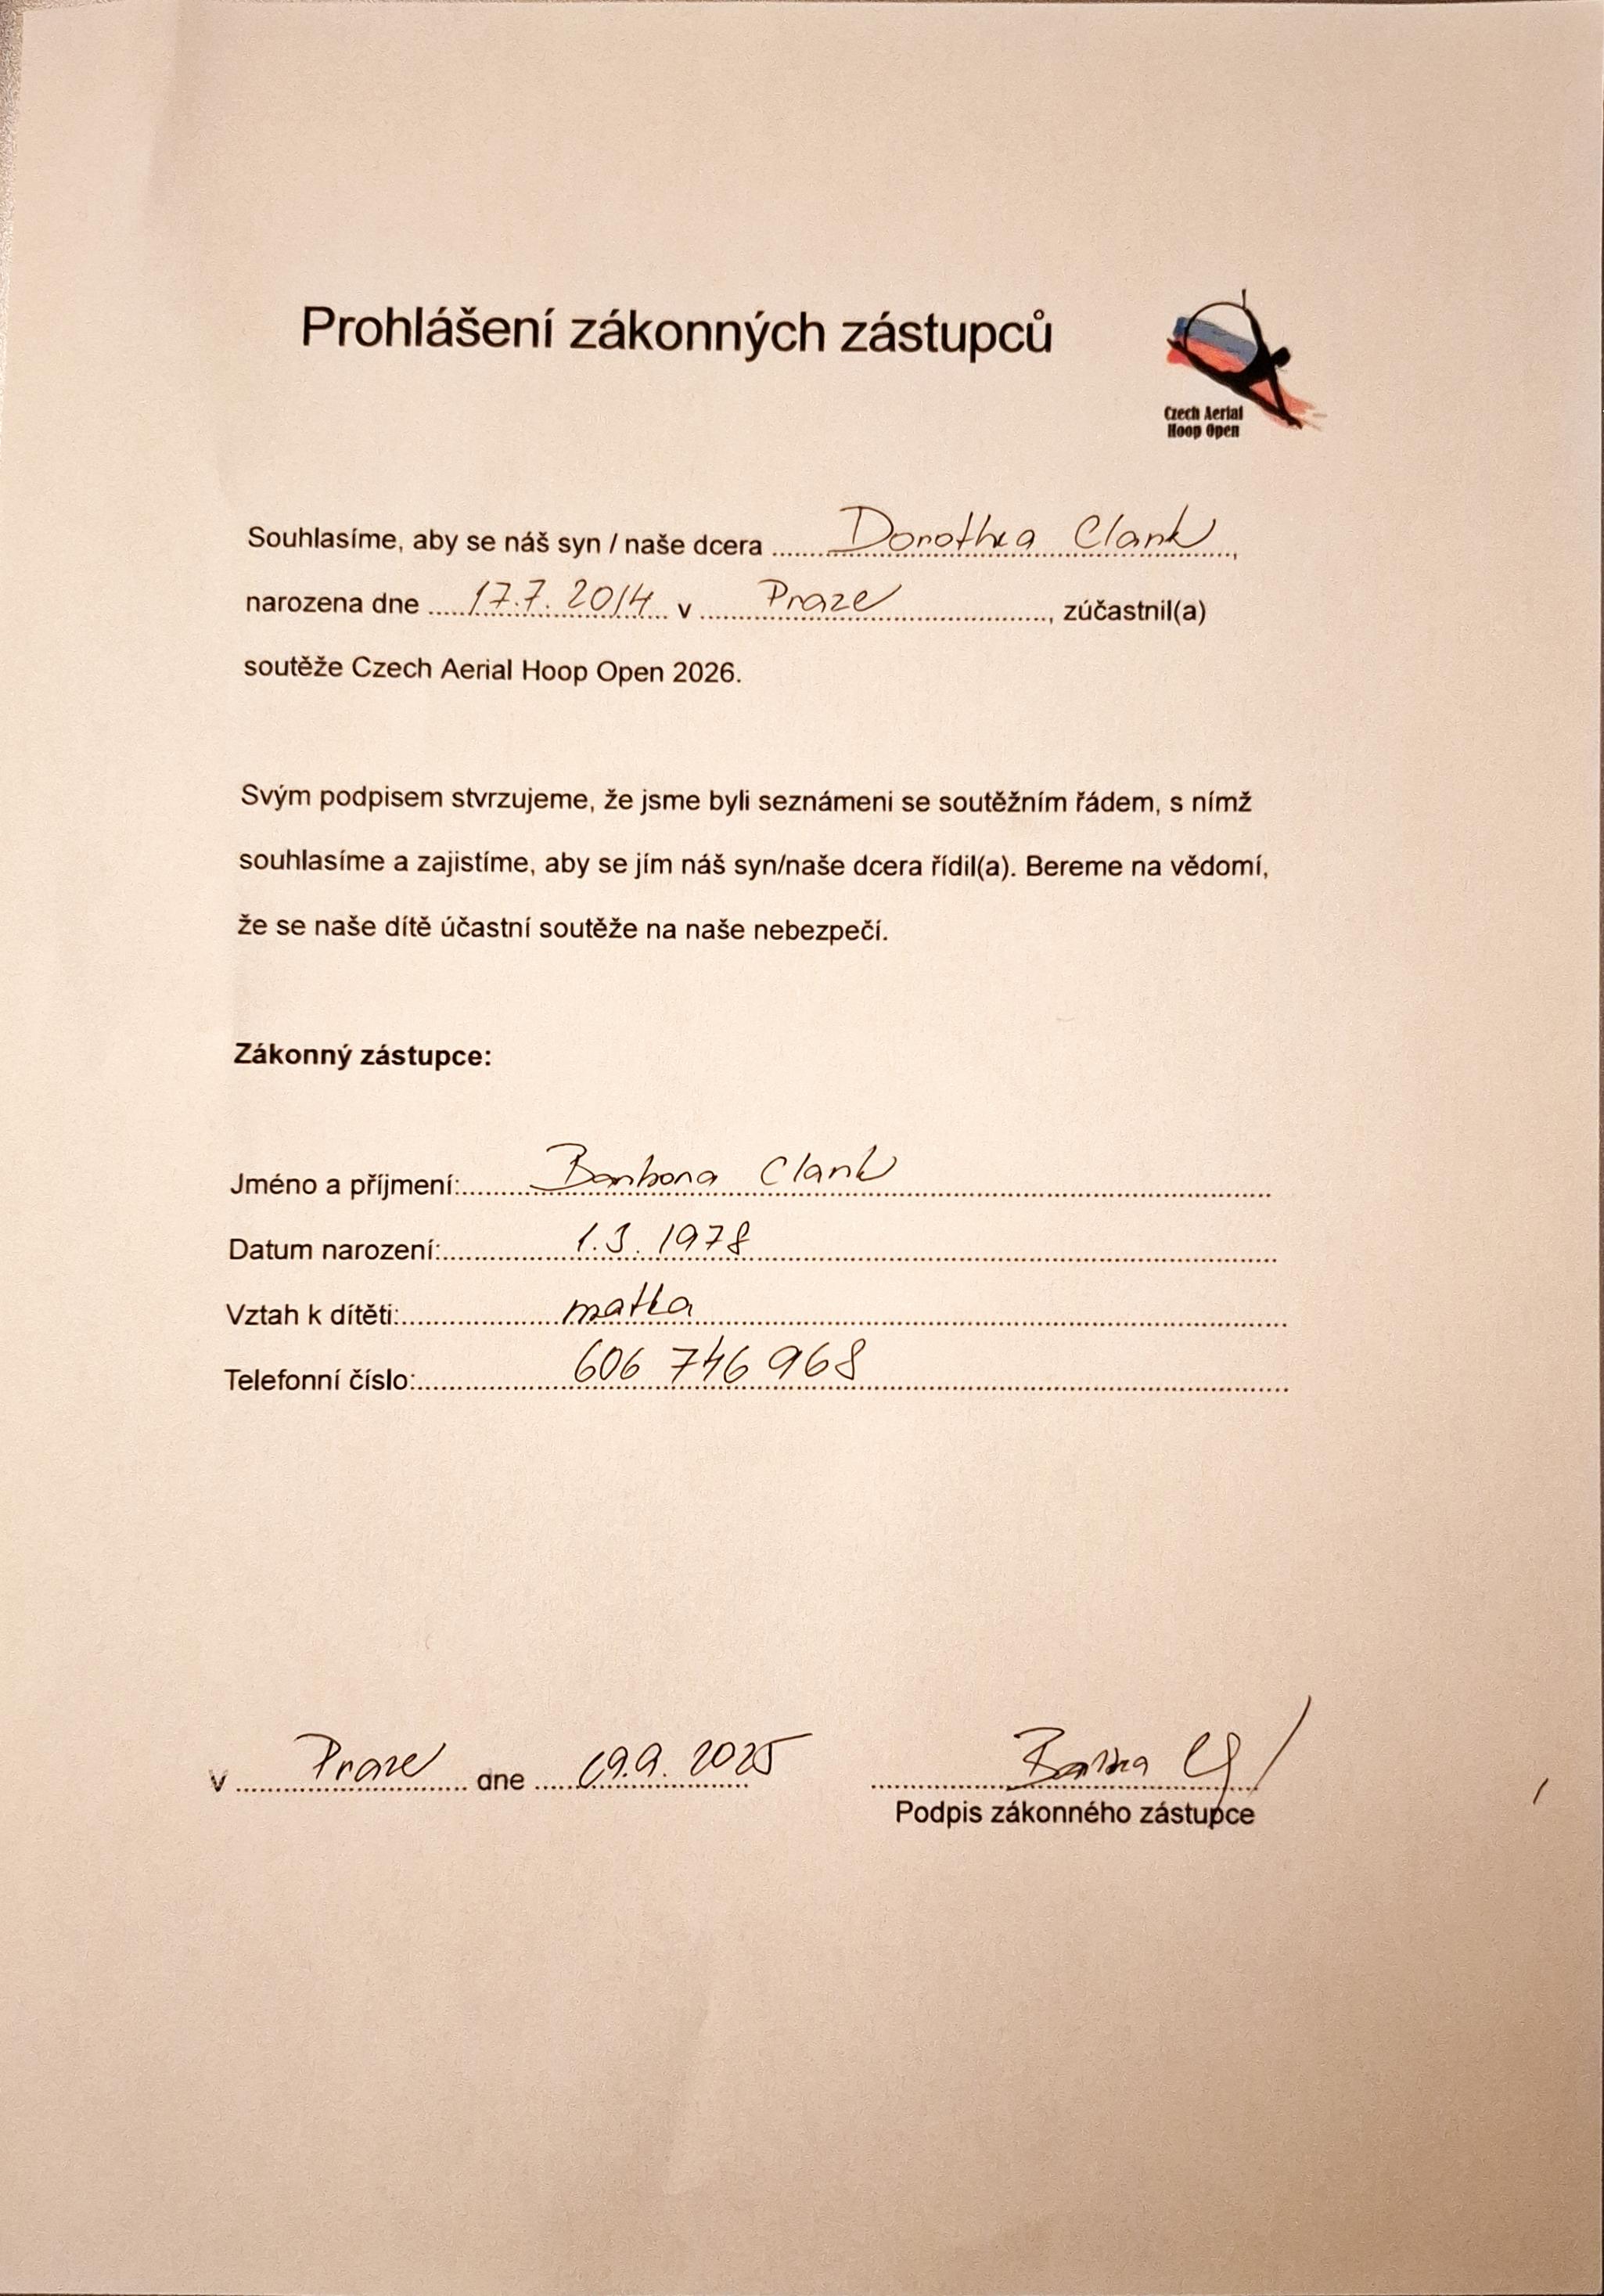 Prohlášení zákonných zástupců
Czech Aerial
Hoop Open
Souhlasíme, aby se náš syn / naše dcera Dorothea Clark,
narozena dne 17.7. 2014 v Praze, zúčastnil(a)
soutěže Czech Aerial Hoop Open 2026.
Svým podpisem stvrzujeme, že jsme byli seznámeni se soutěžním řádem, s nímž
souhlasíme a zajistíme, aby se jím náš syn/naše dcera řídil(a). Bereme na vědomí,
že se naše dítě účastní soutěže na naše nebezpečí.
Zákonný zástupce:
Jméno a příjmení: Barbora Clark
Datum narození: 1.3. 1978
Vztah k dítěti: matka
Telefonní číslo: 606 746 968
v Praze dne 19.9. 2025
Podpis zákonného zástupce